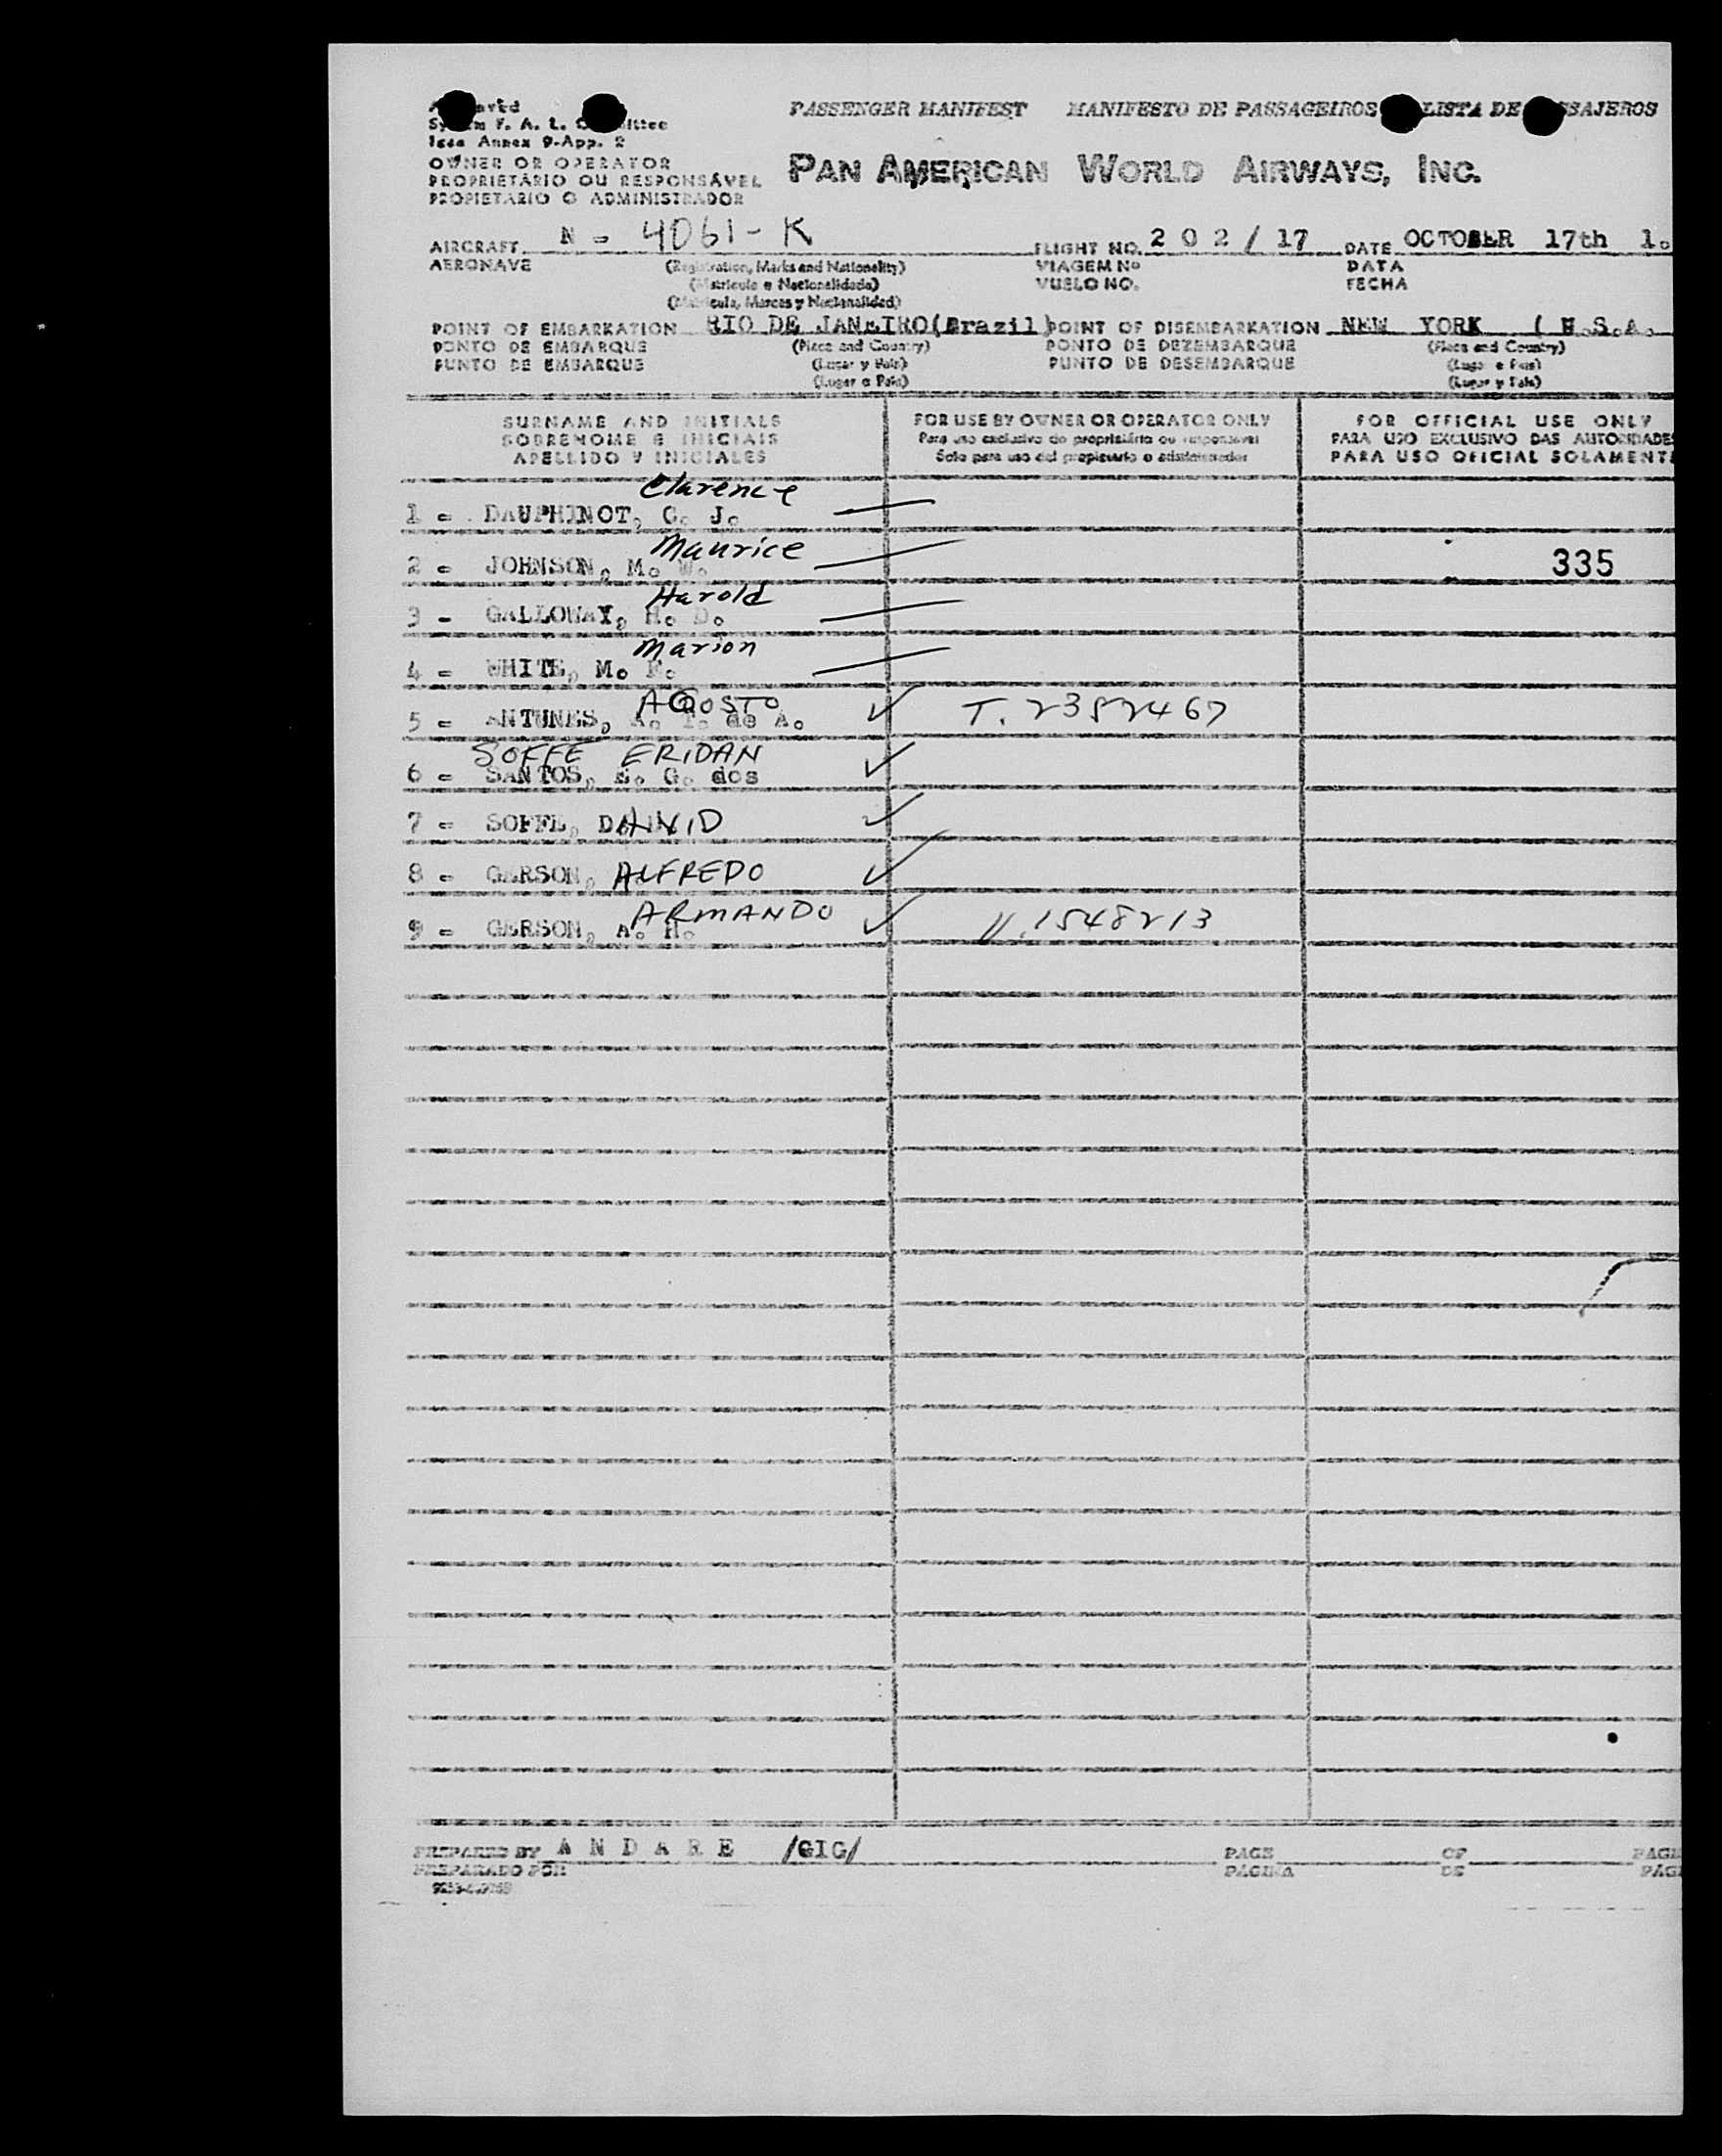 PASSENGER MANIFEST MANIFESTO DE PASSAGEIROS LISTA DE
F. A. L.
Icao Annex 9-App. 2
OWNER OR OPERATOR
PROPRIETÁRIO OU RESPONSÁVEL
PROPIETARIO O ADMINISTRADOR
PAN AMERICAN WORLD AIRWAYS, INC.
AIRCRAFT N - 4061-K FLIGHT NO. 202/17 DATE OCTOBER 17th 1.
AERONAVE (Registration, Marks and Nationality) VIAGEM Nº DATA
(Matricula e Nacionalidade) VUELO NO. FECHA
(Matricula, Marcas y Nacionalidad)
POINT OF EMBARKATION RIO DE JANEIRO(Brazil) POINT OF DISEMBARKATION NEW YORK ( U.S.A.
PONTO DE EMBARQUE (Place and Country) PONTO DE DEZEMBARQUE (Place and Country)
PUNTO DE EMBARQUE (Lugar y País) PUNTO DE DESEMBARQUE (Lugar e País)
(Lugar e País) (Lugar y País)
SURNAME AND INITIALS FOR USE BY OWNER OR OPERATOR ONLY FOR OFFICIAL USE ONLY
SOBRENOME E INICIAIS Para uso exclusivo do proprietário ou responsável PARA USO EXCLUSIVO DAS AUTORIDADES
APELLIDO Y INICIALES Solo para uso del propietario o administrador PARA USO OFICIAL SOLAMENTE
Clarence
1 - DAUPHINOT, C. J.
Maurice
2 - JOHNSON, M. W. 335
Harold
3 - GALLOWAY, H. D.
Marion
4 - WHITE, M. F.
AGOSTO
5 - ANTUNES, A. T. de A. T. 2382467
SOFFE ERIDAN
6 - SANTOS, E. G. dos
7 - SOFFE, DAVID
8 - GERSON, ALFREDO
ARMANDO
9 - GERSON, A. H. V.1548213
PREPARED BY A N D A R E /GIG/ PAGE OF PAGE
PREPARADO POR PÁGINA DE PÁGI